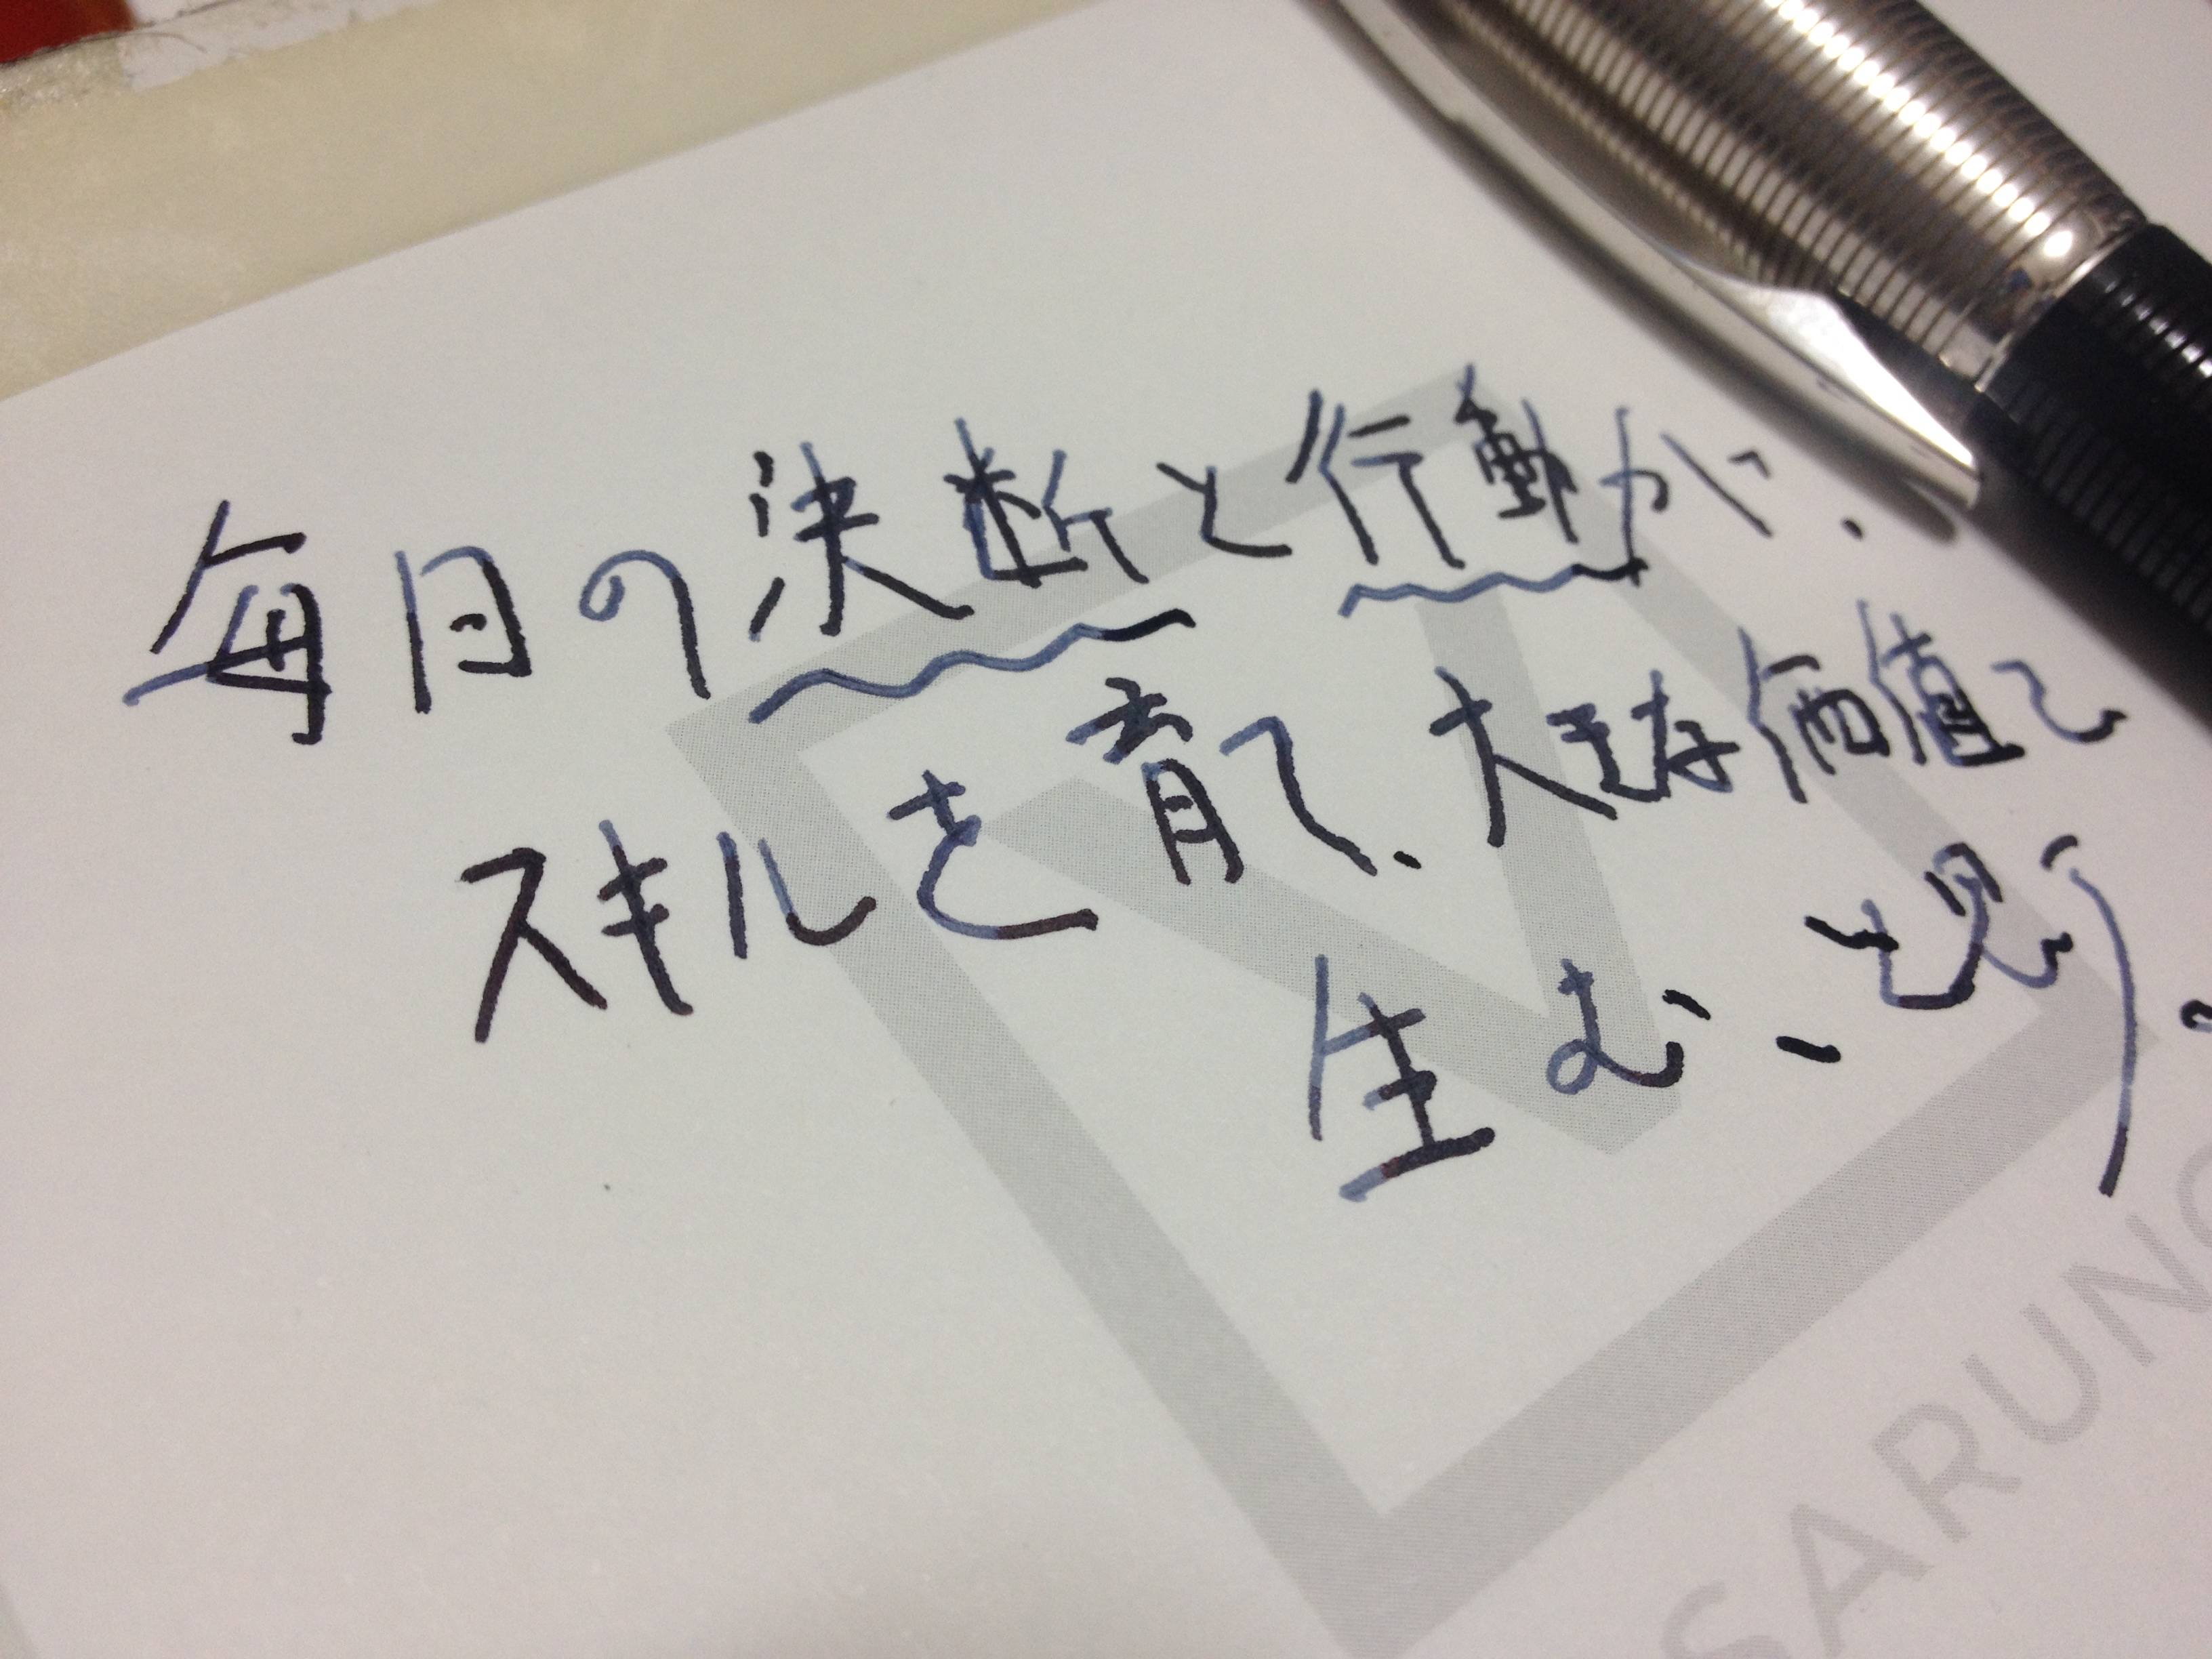 毎日の決断と行動が、
スキルを育て、大きな価値を
生む、と思う。
SARUNO